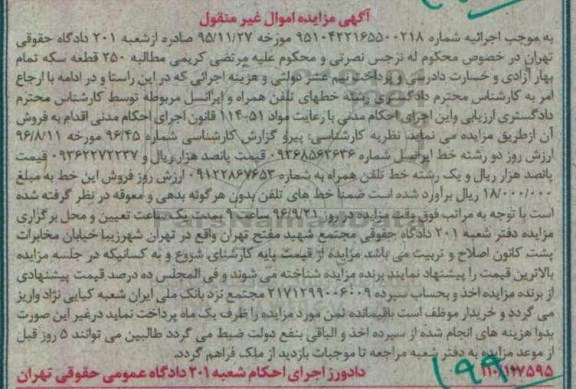 آگهی مزایده اموال غیر منقول
به موجب اجرائیه شماره ۹۵۱۰۴۲۲۱۶۵۵۰۰۲۱۸ مورخه ۹۵/۱۱/۲۷ صادره ازشعبه ۲۰۱ دادگاه حقوقی
تهران در خصوص محکوم له نرجس نصرتی و محکوم علیه مرتضی کریمی مطالبه ۲۵۰ قطعه سکه تمام
بهار آزادی و خسارت دادرسی و پرداخت نیم عشر دولتی و هزینه اجرائی که در این راستا و در ادامه با ارجاع
امر به کارشناس محترم دادگستری رشته خطهای تلفن همراه و ایرانسل مربوطه توسط کارشناس محترم
دادگستری ارزیابی واین اجرای احکام مدنی با رعایت مواد ۵۱-۱۱۴ قانون اجرای احکام مدنی اقدام به فروش
آن ازطریق مزایده می نماید. نظریه کارشناسی: پیرو گزارش کارشناسی شماره ۹۶/۴۵ مورخه ۹۶/۸/۱۱
ارزش روز دو رشته خط ایرانسل شماره ۰۹۳۶۸۵۶۳۶۳۶ قیمت پانصد هزار ریال و ۰۹۳۶۲۲۷۲۲۳۷ قیمت
پانصد هزار ریال و یک رشته خط تلفن همراه به شماره ۰۹۱۲۲۸۶۷۶۵۳ ارزش روز فروش این خط به مبلغ
۱۸/۰۰۰/۰۰۰ ریال برآورد شده است ضمنا خط های تلفن بدون هرگونه بدهی و معوقه در نظر گرفته شده
است با توجه به مراتب فوق وقت مزایده در روز ۹۶/۹/۲۱ ساعت ۹ بمدت یک ساعت تعیین و محل برگزاری
مزایده دفتر شعبه ۲۰۱ دادگاه حقوقی مجتمع شهید مفتح تهران واقع در تهران شهرزیبا خیابان مخابرات
پشت کانون اصلاح و تربیت می باشد. مزایده از قیمت پایه کارشناسی شروع و به کسانیکه در جلسه مزایده
بالاترین قیمت را پیشنهاد نمایند برنده مزایده شناخته می شوند و فی المجلس ده درصد قیمت پیشنهادی
از برنده مزایده اخذ و بحساب سپرده ۲۱۷۱۲۹۹۰۰۶۰۰۹ مجتمع نزد بانک ملی ایران شعبه کیایی نژاد واریز
می گردد و خریدار موظف است باقیمانده ثمن مورد مزایده را ظرف یک ماه پرداخت نماید درغیر این صورت
بدوا هزینه های انجام شده از سپرده اخذ و الباقی بنفع دولت ضبط می گردد طالبین می توانند ۵ روز قبل
از موعد مزایده به دفتر شعبه مراجعه تا موجبات بازدید از ملک فراهم گردد.
دادورز اجرای احکام شعبه ۲۰۱ دادگاه عمومی حقوقی تهران